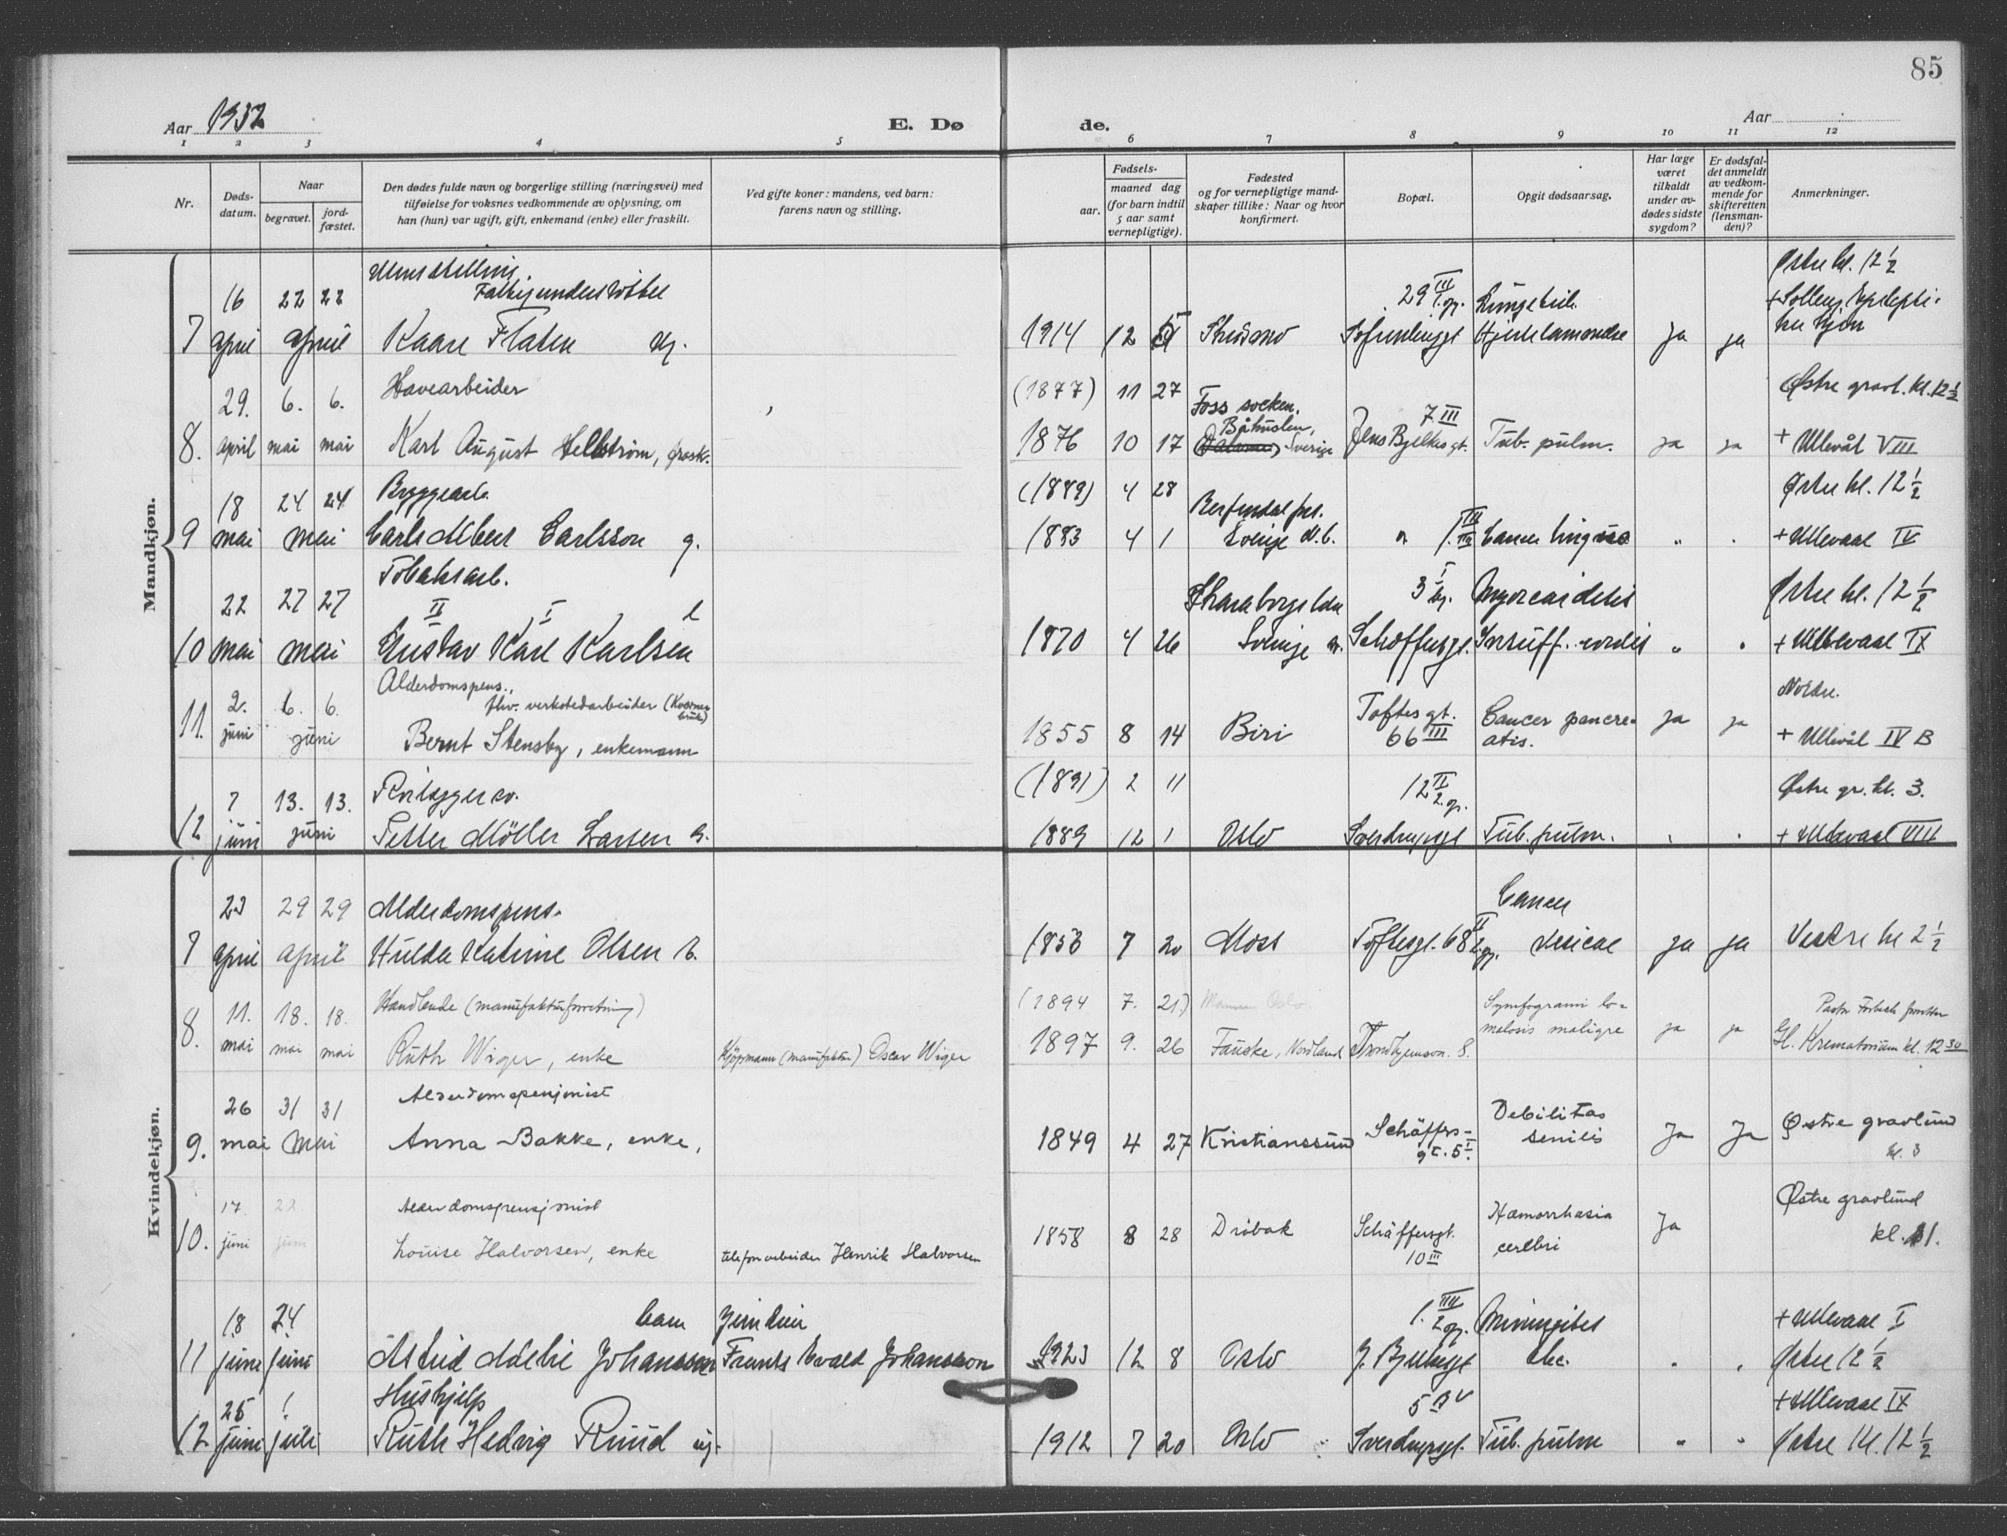 85
Aar 1932
E. Dø
de.
Aar
1 2 3 4 5 6 7 8 9 10 11 12
Nr.
Døds-
datum.
Naar
begravet.
jord-
fæstet.
Den dødes fulde navn og borgerlige stilling (næringsvei) med
tilføielse for voksnes vedkommende av oplysning, om
han (hun) var ugift, gift, enkemand (enke) eller fraskilt.
Ved gifte koner: mandens, ved barn:
farens navn og stilling.
Fødsels-
aar.
maaned dag
(for barn indtil
5 aar samt
vernepligtige).
Fødested
og for vernepligtige mand-
skaper tillike: Naar og hvor
konfirmert.
Bopæl.
Opgit dødsaarsag.
Har læge
været
tilkaldt
under av-
dødes sidste
sygdom?
Er dødsfal-
det anmeldt
av vedkom-
mende for
skifteretten
(lensman-
den)?
Anmerkninger.
Mandkjøn.
Østre kl. 12 1/2
16 22 22
29 III
7 april april Kaare Flaten ug.
1914 12
Ja ja
Havearbeider
(1877) 11 27
Østre gravl. kl. 12 1/2
29. 6. 6.
Foss socken,
Båhuslen,
7 III
8. april mai mai Karl August Hellstrøm, frask.
1876 10 17 Sverige Jens Bjelkes gt. Tub. pulm. ja ja + Ullevål VIII
Bryggearb.
(1889) 4 28
Østre kl. 12 1/2
18 24 24
9 mai mai Carl Albert Carlsson g.
1883 4 1 Sverige Cancer " + Ullevaal IV
Tobaksarb.
22 27 27
II I
3 I
Østre kl. 12 1/2
10 mai mai Gustav Karl Karlsen
1870 4 26 Sverige Schæffersgt. Insuff. cordis " + Ullevaal IX
Alderdomspens.,
fhv. verkstedarbeider (Kværner
bruk)
Nordre.
2. 6. 6.
11. juni juni Bernt Stensby, enkemann
1855 8 14 Biri Toftes gt.
66 III
Cancer pancre-
atis.
ja ja + Ullevål IV B
(1891) 2 11
12 II
2. op.
Østre gr. kl. 3.
7 13. 13.
12 juni juni Petter Möller Larsen
1889 12 1 Oslo Sverdrupsgt Tub. pulm. + Ullevaal VIII
Kvindekjøn.
23 29 29 Alderdomspens.
Cancer
7 april april Hulda Katrine Olsen
7 20 Moss Toftesgt. 68 II vesicae ja ja Vestre kl 2 1/2
Handlende (manufakturforretning)
11. 18. 18.
(1894 7. 21)
8. mai mai mai Ruth Wiger, enke Kjøpmann (manufaktur) Oscar Wiger
1897 9. 26 Fauske, Nordland Trondhjemsvn. 8. ja ja Gl. Krematorium kl. 12 30
26 31 31
9. mai mai Anna Bakke, enke,
1849 4 27 Kristianssund Schäffers-
gt. 5 I.
Debilitas
senilis
Ja Ja Østre gravlund
kl. 3
17. 22
10. juni juni Louise Halvorsen, enke telefonarbeider Henrik Halvorsen
1858 8 28 Drøbak Schäffersgt.
10 III
Hæmorrhasia
cerebri
Ja
Østre gravlund
kl. 1.
18 24
+ Ullevaal I
11 juni juni Astrid Johansson Frants Evald Johansson
1923 12 8 Oslo Østre 12 1/2
Hushjelp
25 1
+ Ullevaal IX
12 juni juli Ruth Hedvig Ruud ug.
1912 7 20 Oslo Sverdrupsgt. Tub. pulm " " Østre kl. 12 1/2